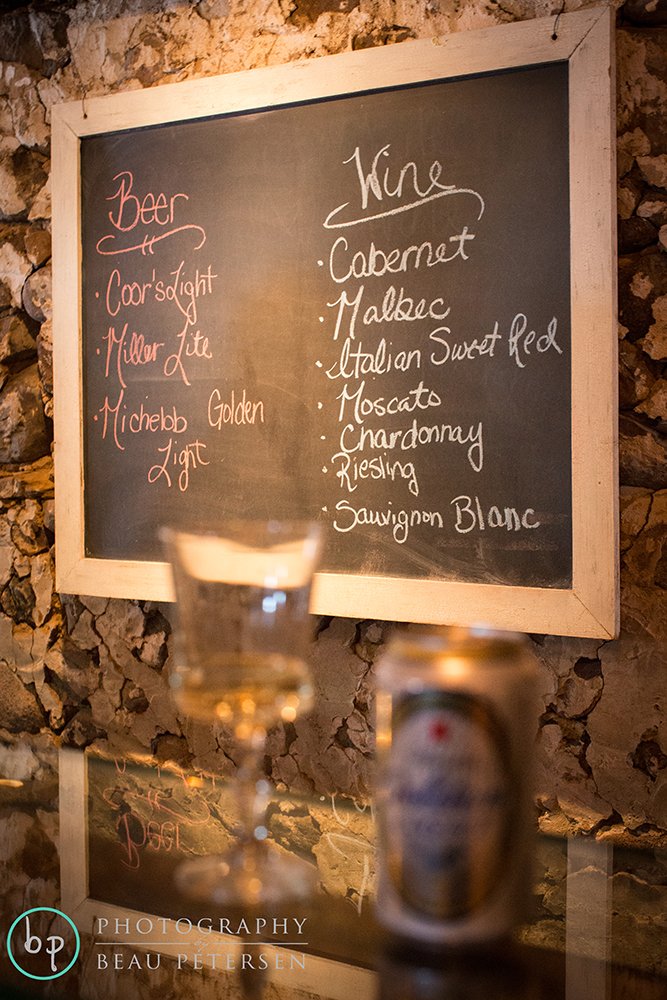 Beer
· Coor's Light
· Miller Lite
· Michelob Golden
Light
Wine
· Cabernet
· Malbec
· Italian Sweet Red
· Moscato
· Chardonnay
· Riesling
· Sauvignon Blanc
bp
PHOTOGRAPHY
by
BEAU PETERSEN